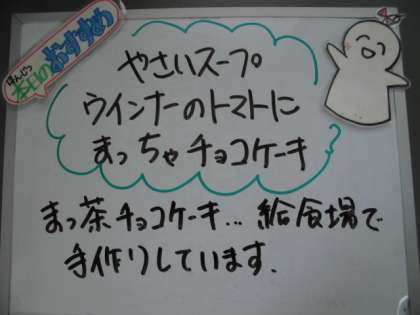 ほんじつ
本日のおすすめ
やさいスープ
ウインナーのトマトに
まっちゃチョコケーキ
まっ茶チョコケーキ… 給食場で
手作りしています。